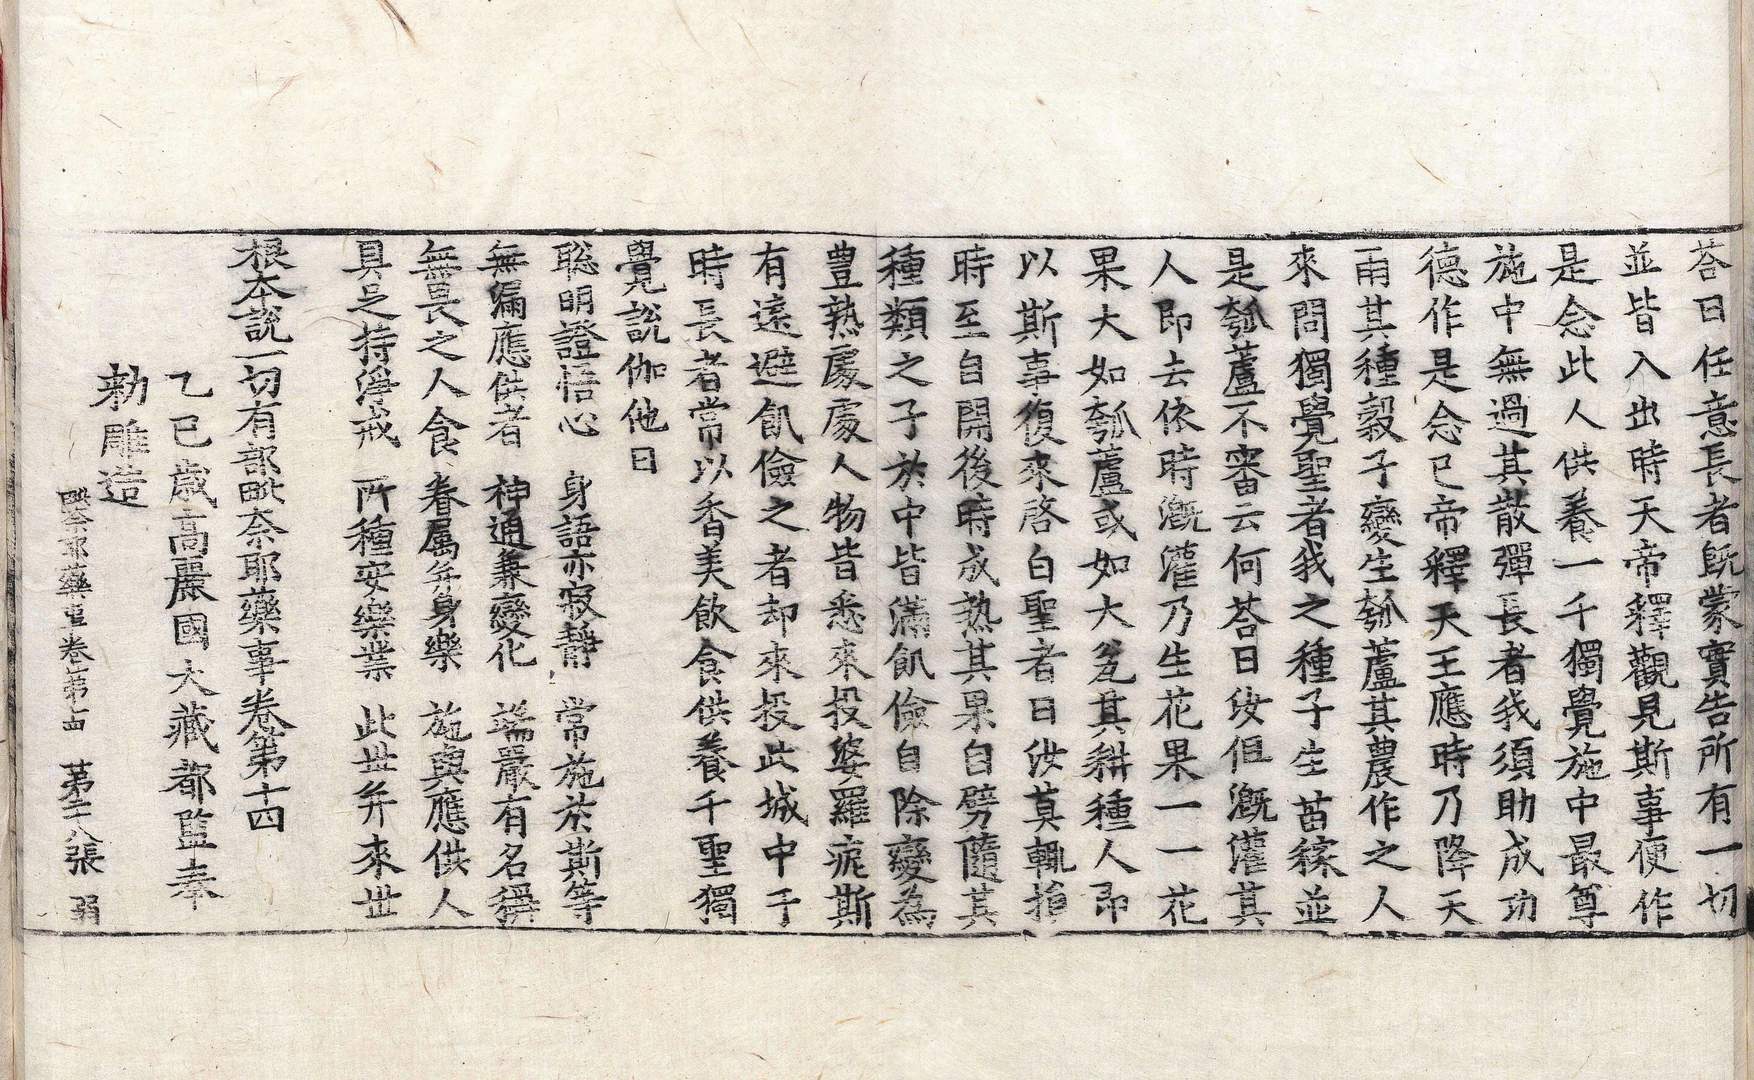 荅曰任意長者旣蒙實告所有一切
並皆入出時天帝釋觀見斯事便作
是念此人供養一千獨覺施中最尊
施中無過其散彈長者我須助成功
德作是念已帝釋天王應時乃降天
雨其種穀子變生瓠蘆其農作之人
來問獨覺聖者我之種子生苗稼並
是瓠蘆不審云何荅曰汝但漑灌其
人即去依時漑灌乃生花果一一花
果大如瓠蘆或如大瓮其耕種人即
以斯事復來啓白聖者曰汝莫輙損
時至自開後時成熟其果自劈隨其
種類之子於中皆滿飢儉自除變爲
豊熟處處人物皆悉來投婆羅痆斯
有遠避飢儉之者却來投此城中于
時長者常以香美飲食供養千聖獨
覺說伽他曰
聡明證悟心 身語亦寂靜 常施於斯等
無漏應供者 神通兼變化 端嚴有名稱
無畏之人食 眷屬并身樂 施與應供人
具足持淨戒 所種安樂業 此世并來世
根本說一切有部毗奈耶藥事卷第十四
乙巳歲高麗國大藏都監奉
勅雕造
毗奈耶藥事卷第十四 第二十八張 弱